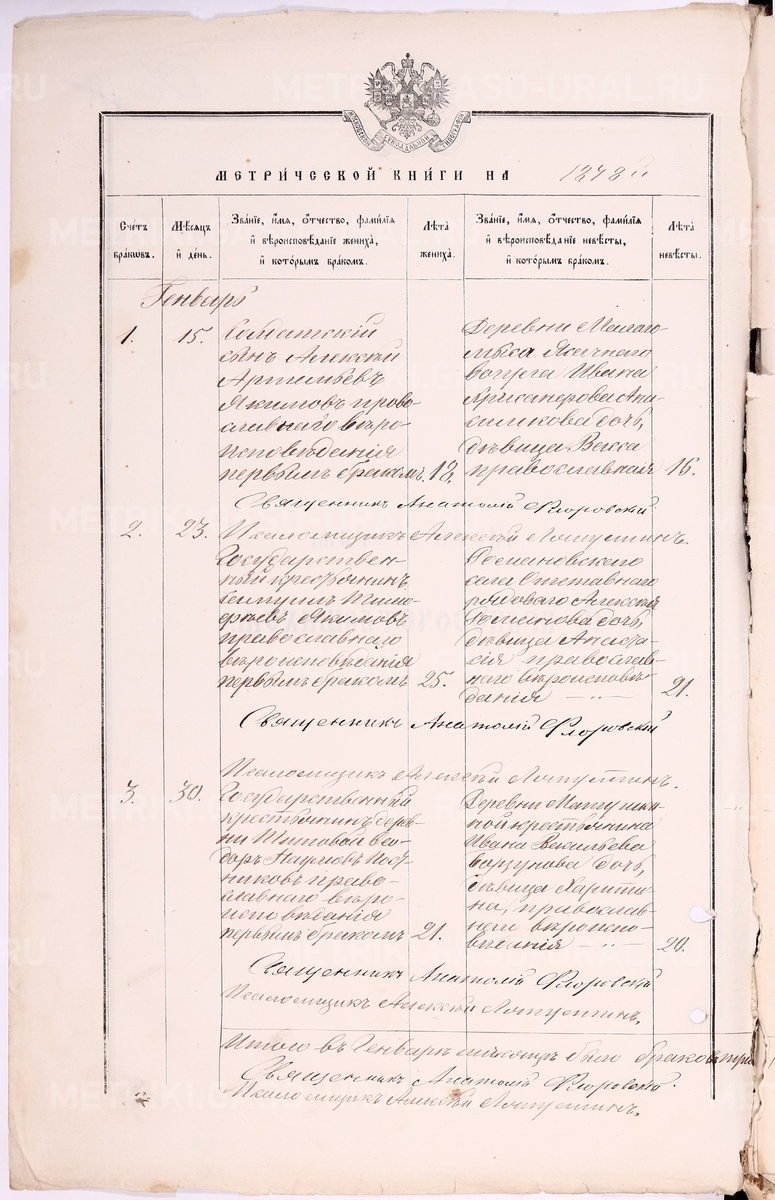 МЕТРИЧЕСКОЙ КНИГИ НА 1878й
Счетъ браковъ.
Мѣсяцъ и день.
Званіе, имя, отчество, фамилія
и вѣроисповѣданіе жениха,
и которымъ бракомъ.
Лѣта жениха.
Званіе, имя, отчество, фамилія
и вѣроисповѣданіе невѣсты,
и которымъ бракомъ.
Лѣта невѣсты.
Генварь
1. 15.
Солдатскій
сынъ Алексѣй
Артемьевъ
Якимовъ право-
славнаго вѣро-
исповѣданія
первымъ бракомъ. 18.
Деревни
Ивана
дочь,
дѣвица Васса
православная 16.
Священникъ Анатолій Флоровскій
Псаломщикъ Алексѣй
2. 23.
Государствен-
ный крестьянинъ
Самуилъ Тимо-
фѣевъ Якимовъ
православнаго
вѣроисповѣданія
первымъ бракомъ 25.
села Отставнаго
рядоваго Алексѣя
Романова дочь,
дѣвица Анаста-
сія православ-
наго вѣроисповѣ-
данія — „ — 21.
Священникъ Анатолій Флоровскій
Псаломщикъ Алексѣй
3. 30.
Государственный
крестьянинъ дерев-
ни Титовой Ѳео-
доръ Наумовъ
православнаго вѣро-
исповѣданія
первымъ бракомъ 21.
Деревни
крестьянина
Ивана Васильева
дочь,
дѣвица Харити-
на, православ-
наго вѣроиспо-
вѣданія — „ — 20.
Священникъ Анатолій Флоровскій
Псаломщикъ Алексѣй
Итого въ Генварѣ мѣсяцѣ было браковъ три
Священникъ Анатолій Флоровскій.
Псаломщикъ Алексѣй